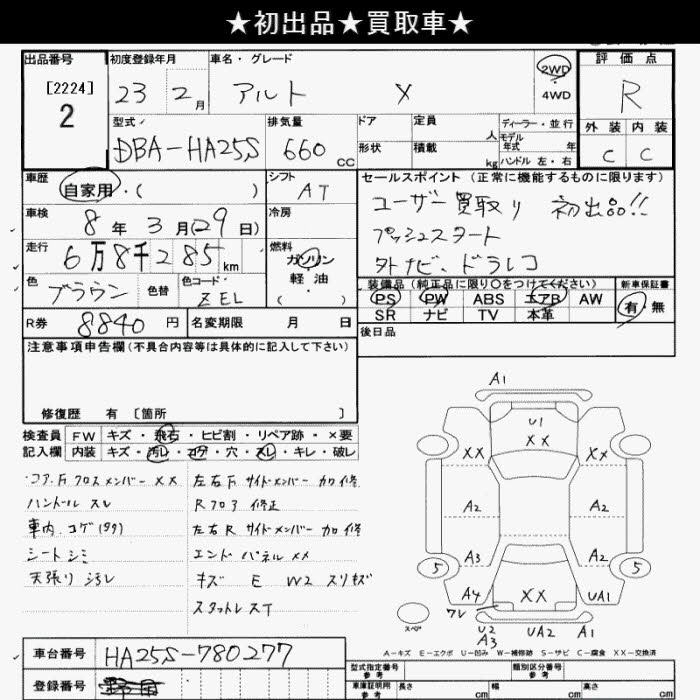 ★初出品★買取車★
出品番号 初度登録年月 車名・グレード 評価点
[2224]
2
23 2月 アルト X 2WD 4WD R
型式 排気量 ドア 定員 人 ディーラー・並行 外装 内装
モデル年式 年
DBA-HA25S 660 CC 形状 積載 kg ハンドル 左・右 C C
車歴 自家用・( ) シフト AT セールスポイント (正常に機能するものに限ります)
車検 8年 3月(29日) 冷房 ユーザー買取り 初出品!!
走行 6万8千285km 燃料 ガソリン 軽・油 ( ) プッシュスタート
色 ブラウン 色替 色コード ZEL 外ナビ、ドラレコ
装備品 (純正品に限り○をつけてください) 新車保証書
PS PW ABS エアB AW 有・無
SR ナビ TV 本革
R券 8840円 名変期限 月 日 後日品
注意事項申告欄 (不具合内容等は具体的に記入して下さい)
修復歴 有 [箇所 ]
検査員 FW キズ・飛石・ヒビ割・リペア跡・×要
記入欄 内装 キズ・汚レ・コゲ・穴・スレ・キレ・破レ
コア.F クロスメンバー XX 左右F サイドメンバー カロ修
ハンドル スレ Rフロア 修正
車内.コゲ(タタ) 左右R サイドメンバー カロ修
シートシミ エンドパネル XX
天張り ヨゴレ キズ E W2 スリキズ
スタットレスT
A1
U1
XX
XX XX
A2 A2
A3 A2
5 5
A4 XX UA1
ワレ
スペア U2 A3 UA2 A1
A-キズ E-エクボ U-凹み W-補修跡 S-サビ C-腐食 XX-交換済
車台番号 HA25S-780277
登録番号
型式指定番号 参考 類別区分番号 参考
車庫証明用 参考 長さ cm 幅 cm 高さ cm